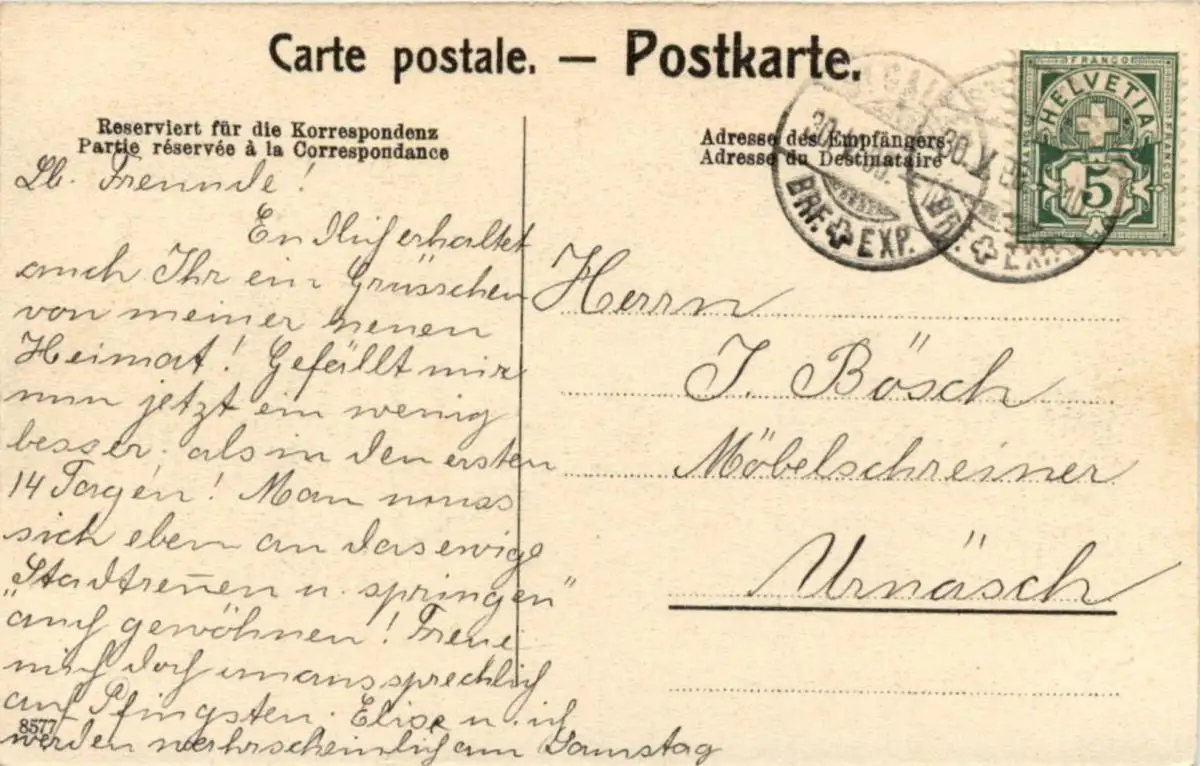 Carte postale. — Postkarte.
Reserviert für die Korrespondenz
Partie réservée à la Correspondance
Adresse des Empfängers
Adresse du Destinataire
FRANCO
HELVETIA
5
BRF. EXP.
BRF. EXP.
Lb. Freunde!
erhaltet
auch Ihr ein Grüsschen
von meiner neuen
Heimat! Gefällt mir
nun jetzt ein wenig
besser, als in den ersten
14 Tagen! Man muss
sich eben an das ewige
"Stadtrennen u. springen"
auch gewöhnen! Freue
mich doch unaussprechlich
auf Pfingsten. Elise u. ich
werden wahrscheinlich am Samstag
Herrn
J. Bösch
Möbelschreiner
Urnäsch
8577